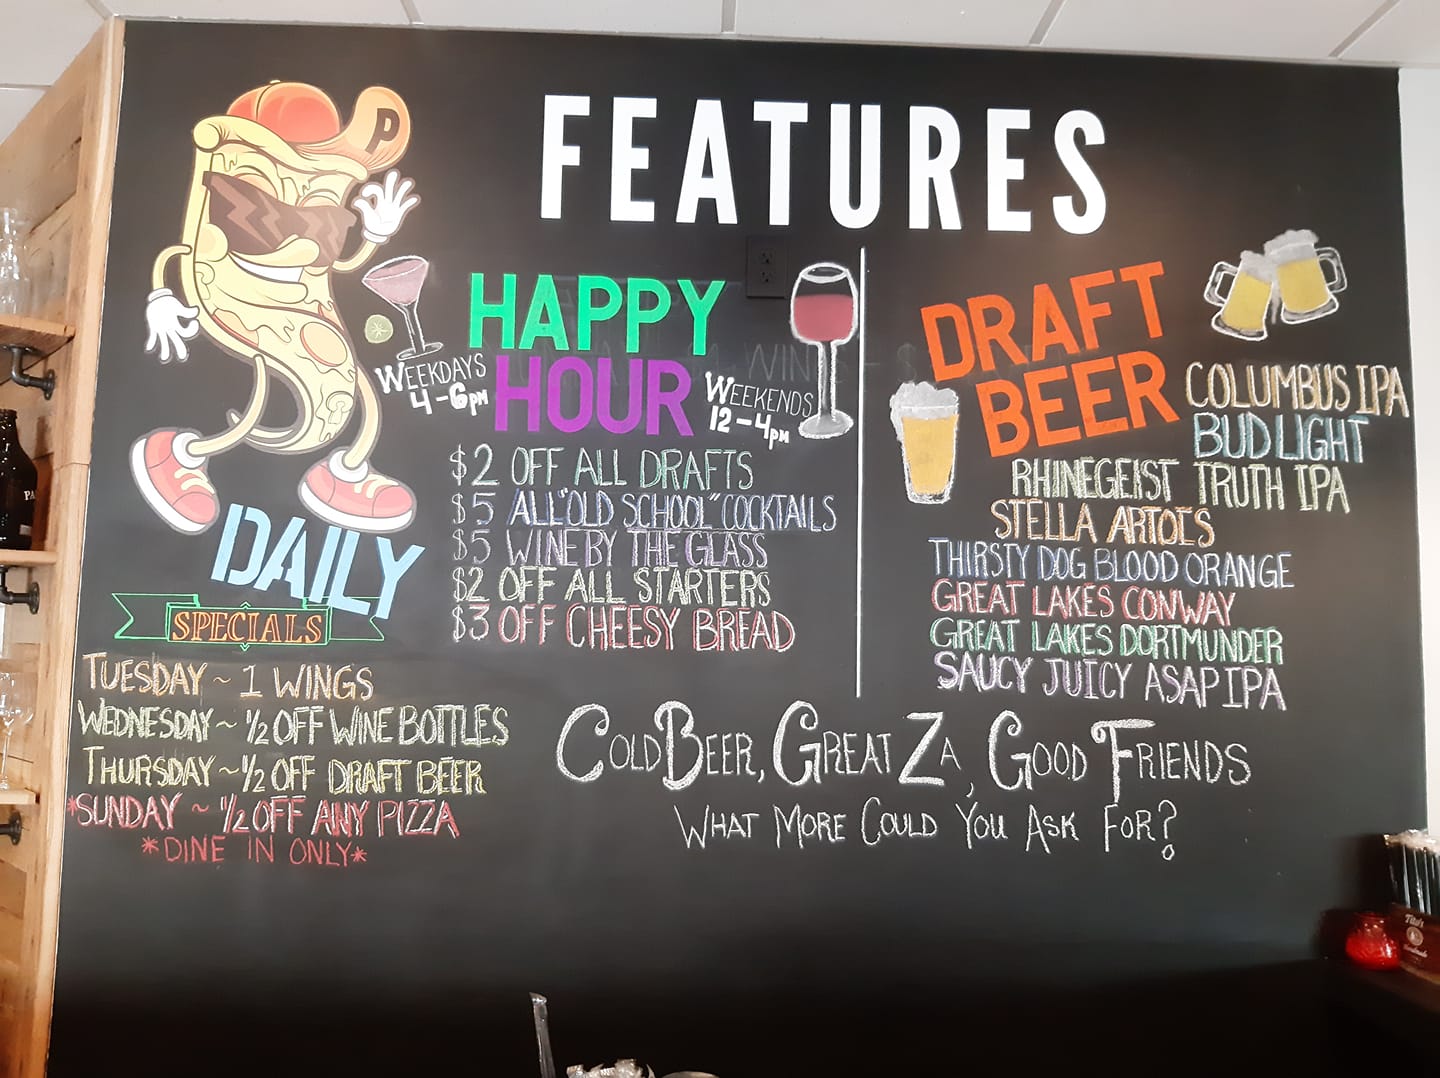 P
FEATURES
HAPPY
HOUR
WEEKDAYS
4-6PM
WEEKENDS
12-4PM
$2 OFF ALL DRAFTS
$5 ALL "OLD SCHOOL" COCKTAILS
$5 WINE BY THE GLASS
$2 OFF ALL STARTERS
$3 OFF CHEESY BREAD
DRAFT
BEER
COLUMBUS IPA
BUD LIGHT
RHINEGEIST TRUTH IPA
STELLA ARTOIS
THIRSTY DOG BLOOD ORANGE
GREAT LAKES CONWAY
GREAT LAKES DORTMUNDER
SAUCY JUICY ASAP IPA
DAILY
SPECIALS
TUESDAY ~ 1 WINGS
WEDNESDAY ~ 1/2 OFF WINE BOTTLES
THURSDAY ~ 1/2 OFF DRAFT BEER
*SUNDAY ~ 1/2 OFF ANY PIZZA
*DINE IN ONLY*
COLD BEER, GREAT ZA, GOOD FRIENDS
WHAT MORE COULD YOU ASK FOR?
PA
Tito's
Handmade